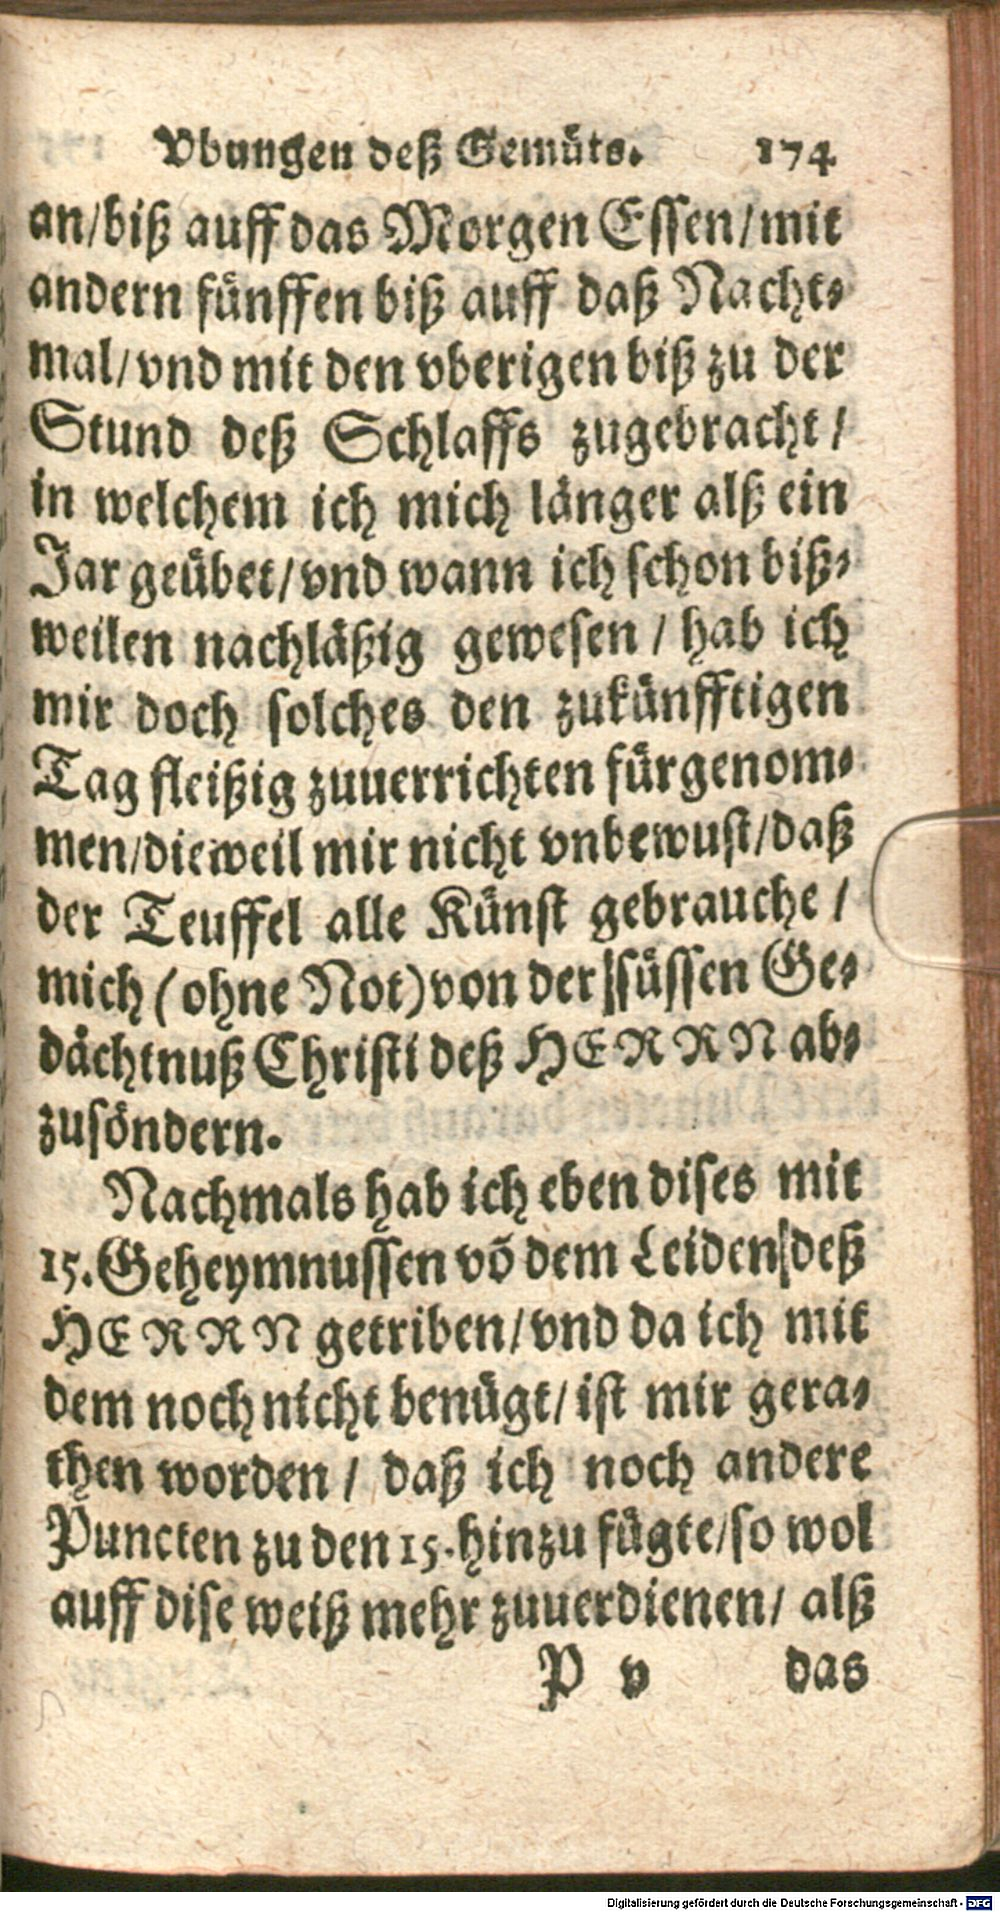 Vbungen deß Gemüts. 174
an/biß auff das Morgen Essen/mit
andern fünffen biß auff daß Nacht-
mal/vnd mit den vberigen biß zu der
Stund deß Schlaffs zugebracht/
in welchem ich mich länger alß ein
Jar geübet/vnd wann ich schon biß-
weilen nachläßig gewesen/ hab ich
mir doch solches den zukünfftigen
Tag fleißig zuuerrichten fürgenom-
men/dieweil mir nicht vnbewust/daß
der Teuffel alle Künst gebrauche/
mich (ohne Not) von der süssen Ge-
dächtnuß Christi deß HERRN ab-
zusöndern.
Nachmals hab ich eben dises mit
15. Geheymnussen võ dem Leiden deß
HERRN getriben/vnd da ich mit
dem noch nicht benügt/ ist mir gera-
then worden/ daß ich noch andere
Puncten zu den 15. hinzu fügte/so wol
auff dise weiß mehr zuuerdienen/ alß
P v das
Digitalisierung gefördert durch die Deutsche Forschungsgemeinschaft - DFG